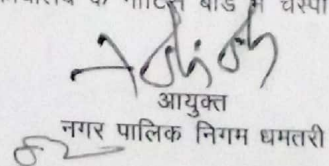 के नोटिस बोर्ड में चस्पा
आयुक्त
नगर पालिक निगम धमतरी